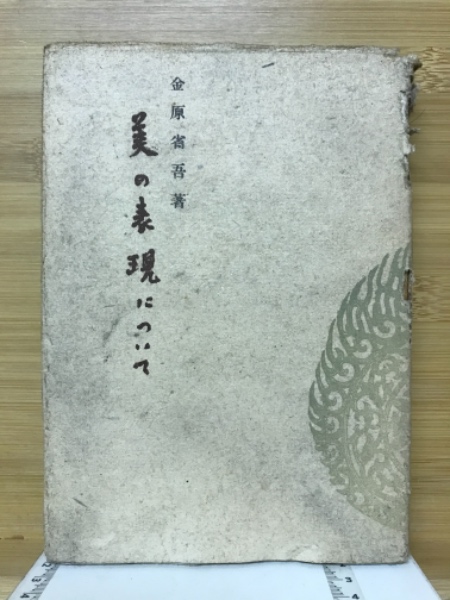 金原省吾著
美の表現について